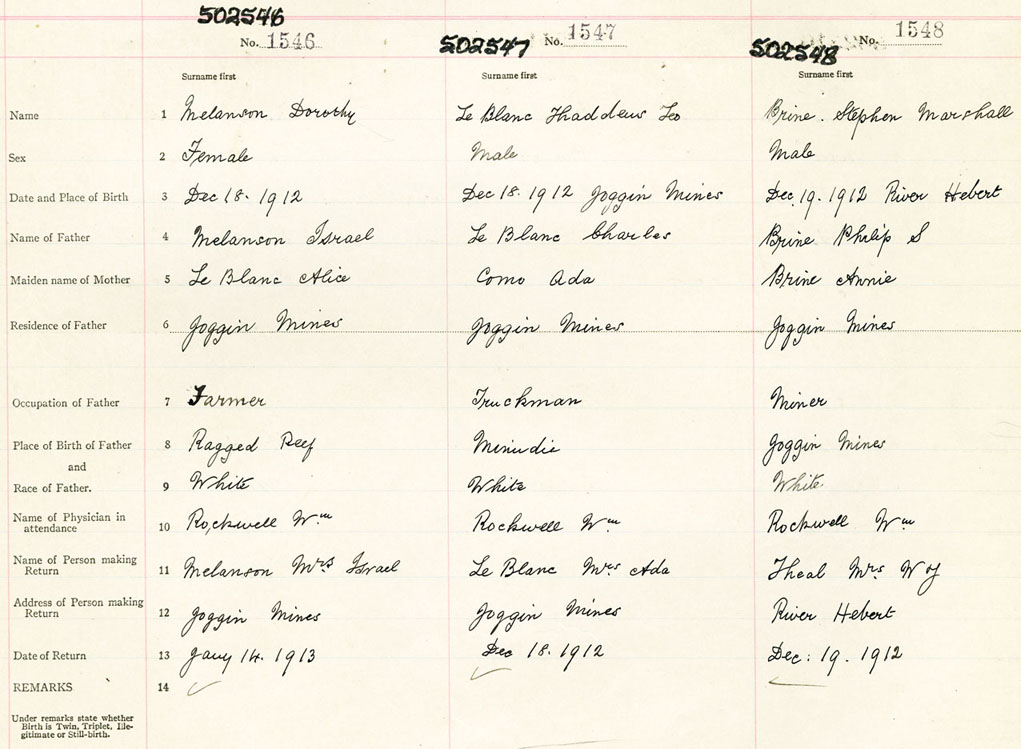 502546 502547 502548
No. 1546 No. 1547 No. 1548
Surname first Surname first Surname first
Name 1 Melanson Dorothy Le Blanc Thaddeus Leo Brine. Stephen Marshall
Sex 2 Female Male Male
Date and Place of Birth 3 Dec 18. 1912 Dec 18. 1912 Joggin Mines Dec. 19. 1912 River Hebert
Name of Father 4 Melanson Israel Le Blanc Charles Brine Philip S
Maiden name of Mother 5 Le Blanc Alice Como Ada Brine Annie
Residence of Father 6 Joggin Mines Joggin Mines Joggin Mines
Occupation of Father 7 Farmer Truckman Miner
Place of Birth of Father 8 Ragged Reef Minudie Joggin Mines
and
Race of Father. 9 White White White
Name of Physician in
attendance 10 Rockwell Wm Rockwell Wm Rockwell Wm
Name of Person making
Return 11 Melanson Mrs Israel Le Blanc Mrs Ada Theal Mrs W
Address of Person making
Return 12 Joggin Mines Joggin Mines River Hebert
Date of Return 13 Jany 14. 1913 Dec 18. 1912 Dec: 19. 1912
REMARKS 14
Under remarks state whether
Birth is Twin, Triplet, Ille-
gitimate or Still-birth.